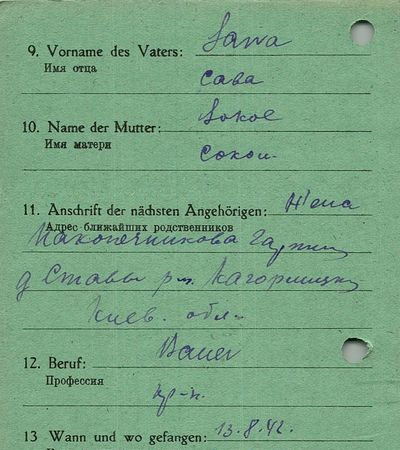 9. Vorname des Vaters: Sawa
Имя отца
Сава
10. Name der Mutter: Sokol
Имя матери
Сокол
11. Anschrift der nächsten Angehörigen: Жена
Адрес ближайших родственников
д Ставы р-н
Киев. обл.
12. Beruf: Bauer
Профессия
кр-н.
13 Wann und wo gefangen: 13.8.42.